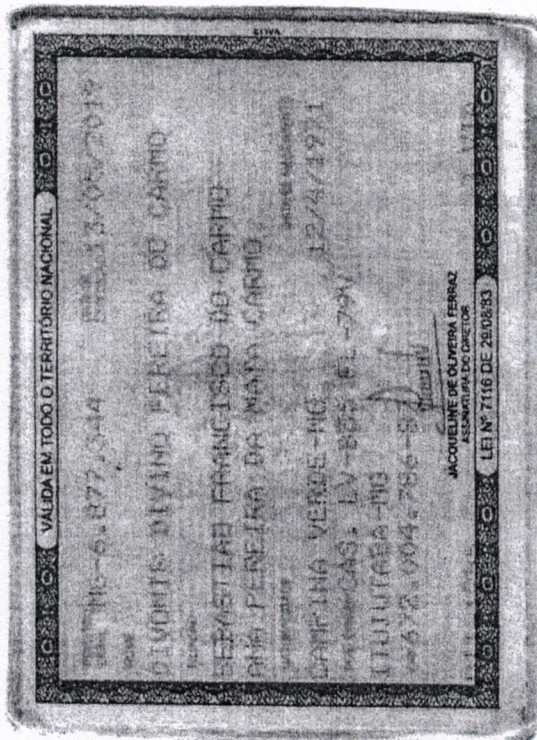 VÁLIDA EM TODO O TERRITÓRIO NACIONAL
MG-6.877.344 13/05/2019
NOME
DIVONIS DIVINO PEREIRA DO CARMO
FILIAÇÃO
SEBASTIAO FRANCISCO DO CARMO
ANA PEREIRA DA MATA CARMO
CAMPINA VERDE-MG 12/4/1971
CAS. LV-B05 FL-79V
ITUIUTABA-MG
672.004.786
JACQUELINE DE OLIVEIRA FERRAZ
ASSINATURA DO DIRETOR
LEI Nº 7116 DE 29/08/83